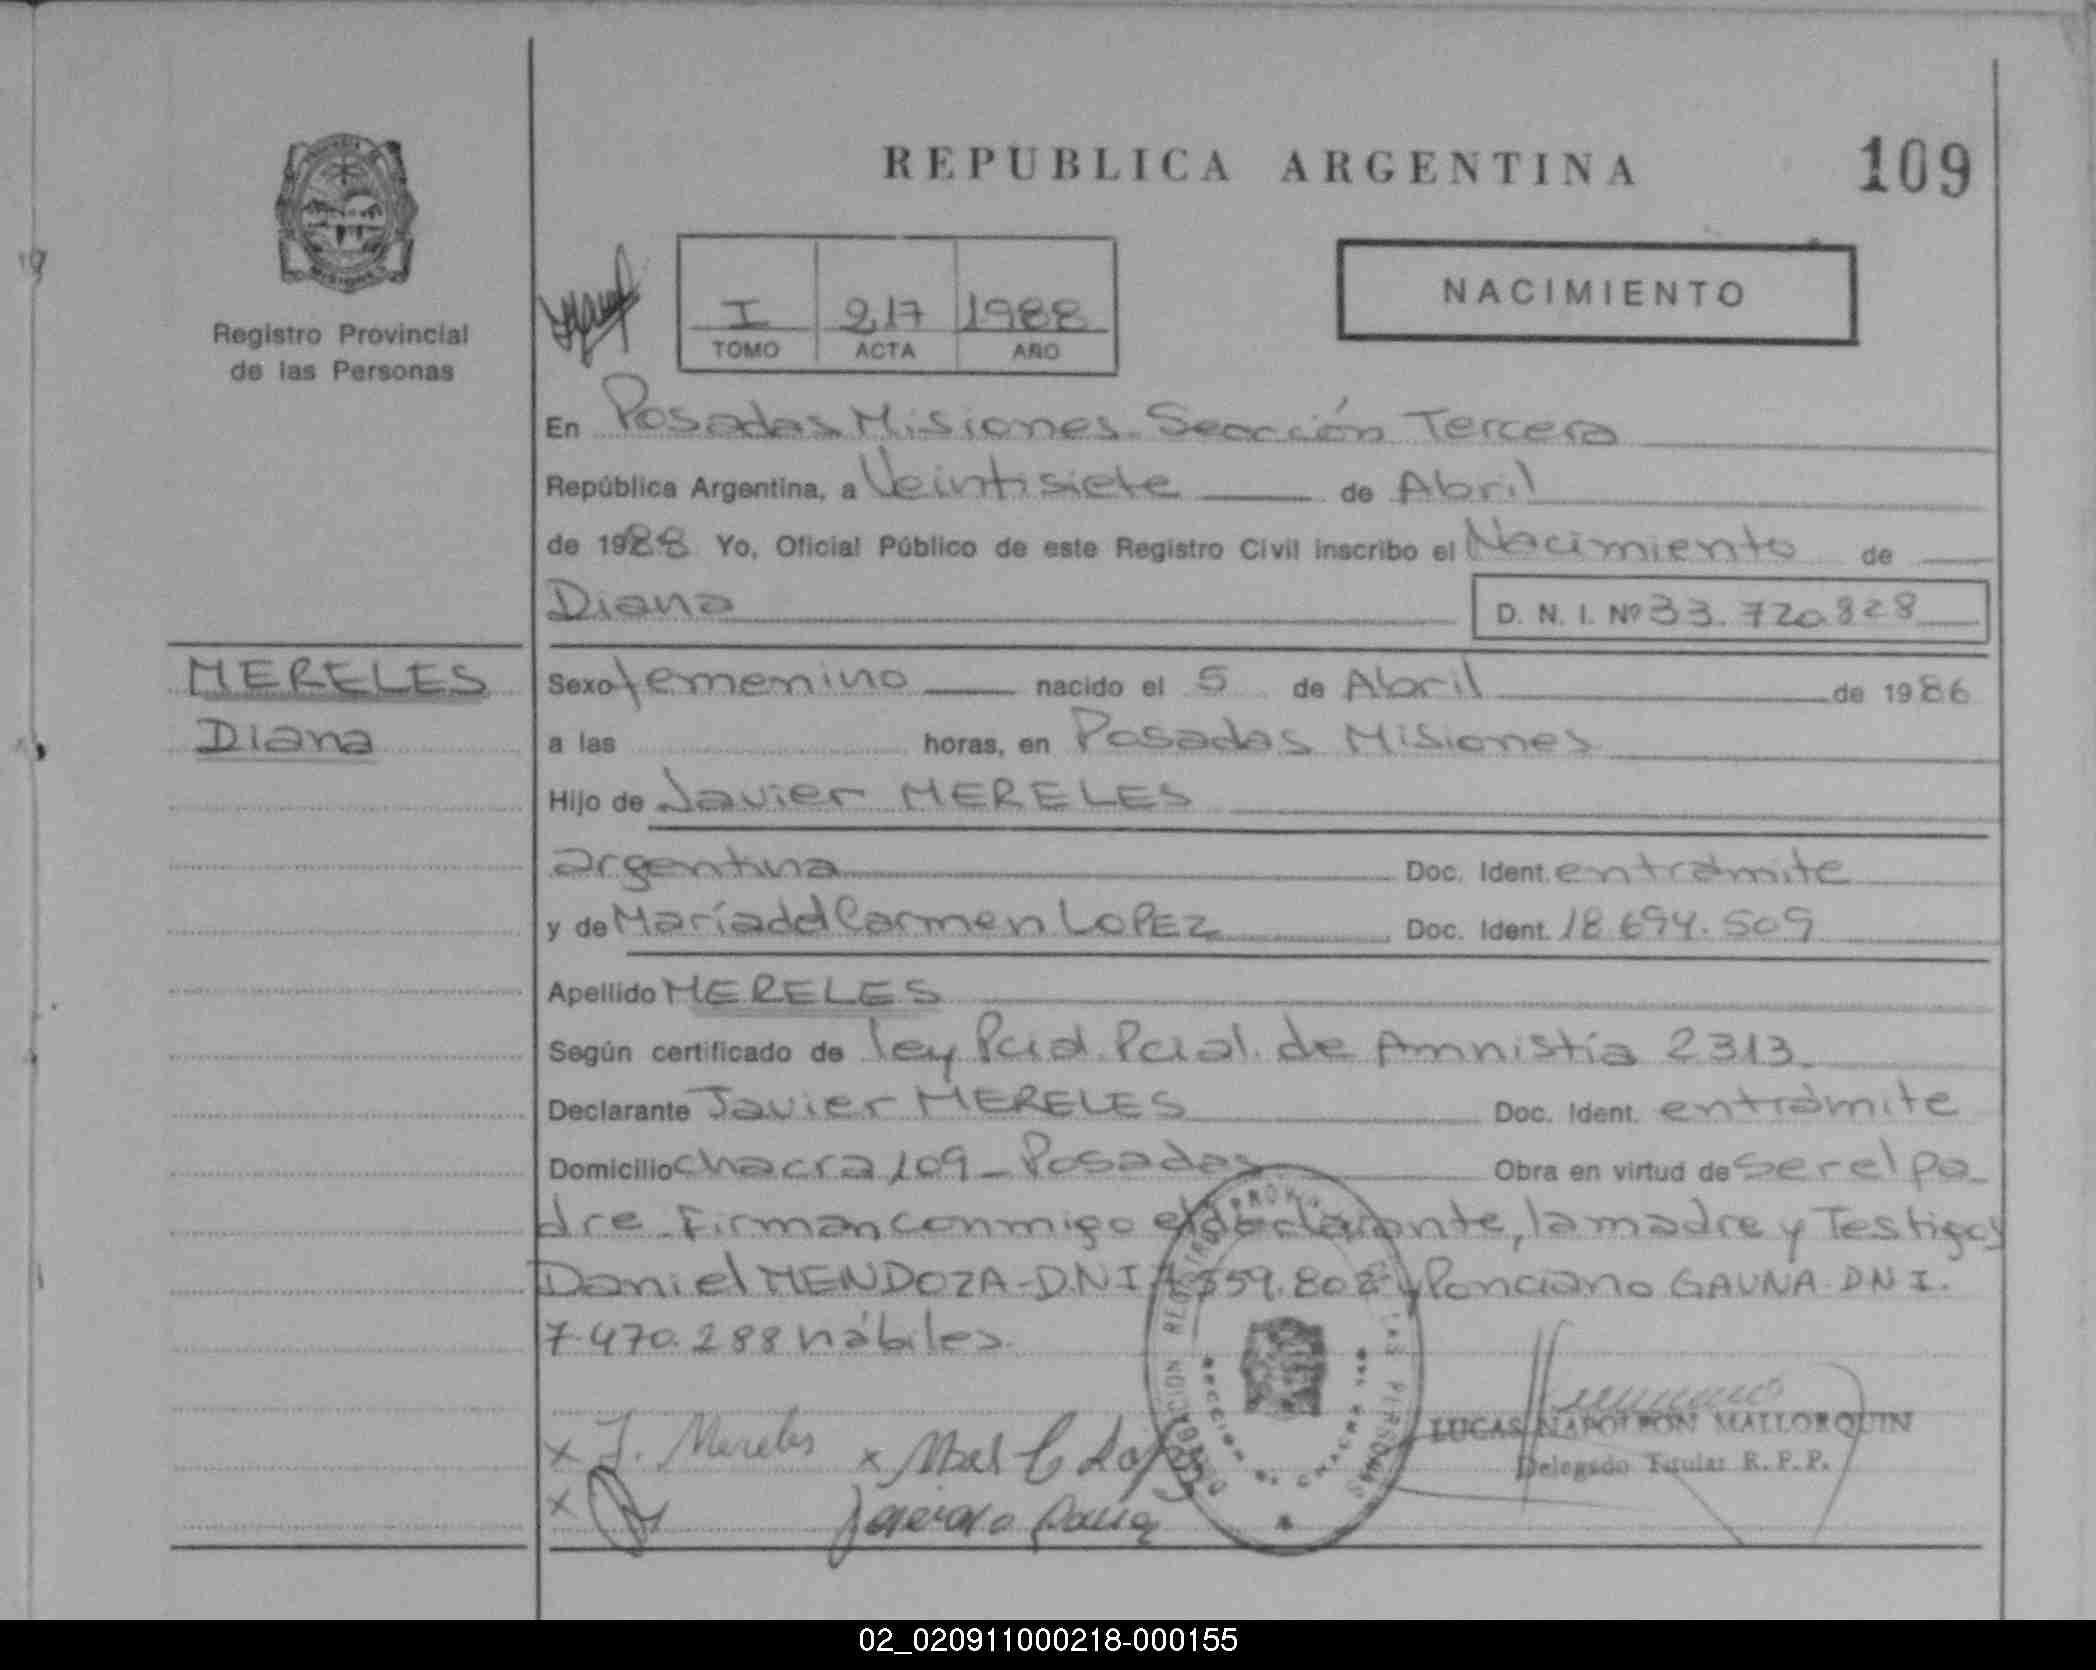 REPUBLICA ARGENTINA
109
Registro Provincial
de las Personas
I 217 1988
TOMO ACTA AÑO
NACIMIENTO
En Posadas Misiones. Seacción Tercera
República Argentina, a Veintisiete de Abril
de 1988 Yo, Oficial Público de este Registro Civil inscribo el Nacimiento de
Diana
D. N. I. Nº 33.720.828
MERELES
Diana
Sexo femenino nacido el 5 de Abril de 1986
a las horas, en Posadas Misiones
Hijo de Javier MERELES
argentina Doc. Ident. entrámite
y de María del Carmen LOPEZ Doc. Ident. 18.694.509
Apellido MERELES
Según certificado de ley Pcial. Pcial. de Amnistía 2313.
Declarante Javier MERELES Doc. Ident. entrámite
Domicilio chacra 109 - Posadas Obra en virtud de ser el pa-
dre. Firman conmigo el declarante, la madre y Testigos
Daniel MENDOZA - D.N.I. 59.808 y Ponciano GAUNA - D N I.
7.470.288 hábiles.
x J. Mereles x
x
LUCAS NAPOLEON MALLORQUIN
Delegado Titular R. P. P.
02_020911000218-000155